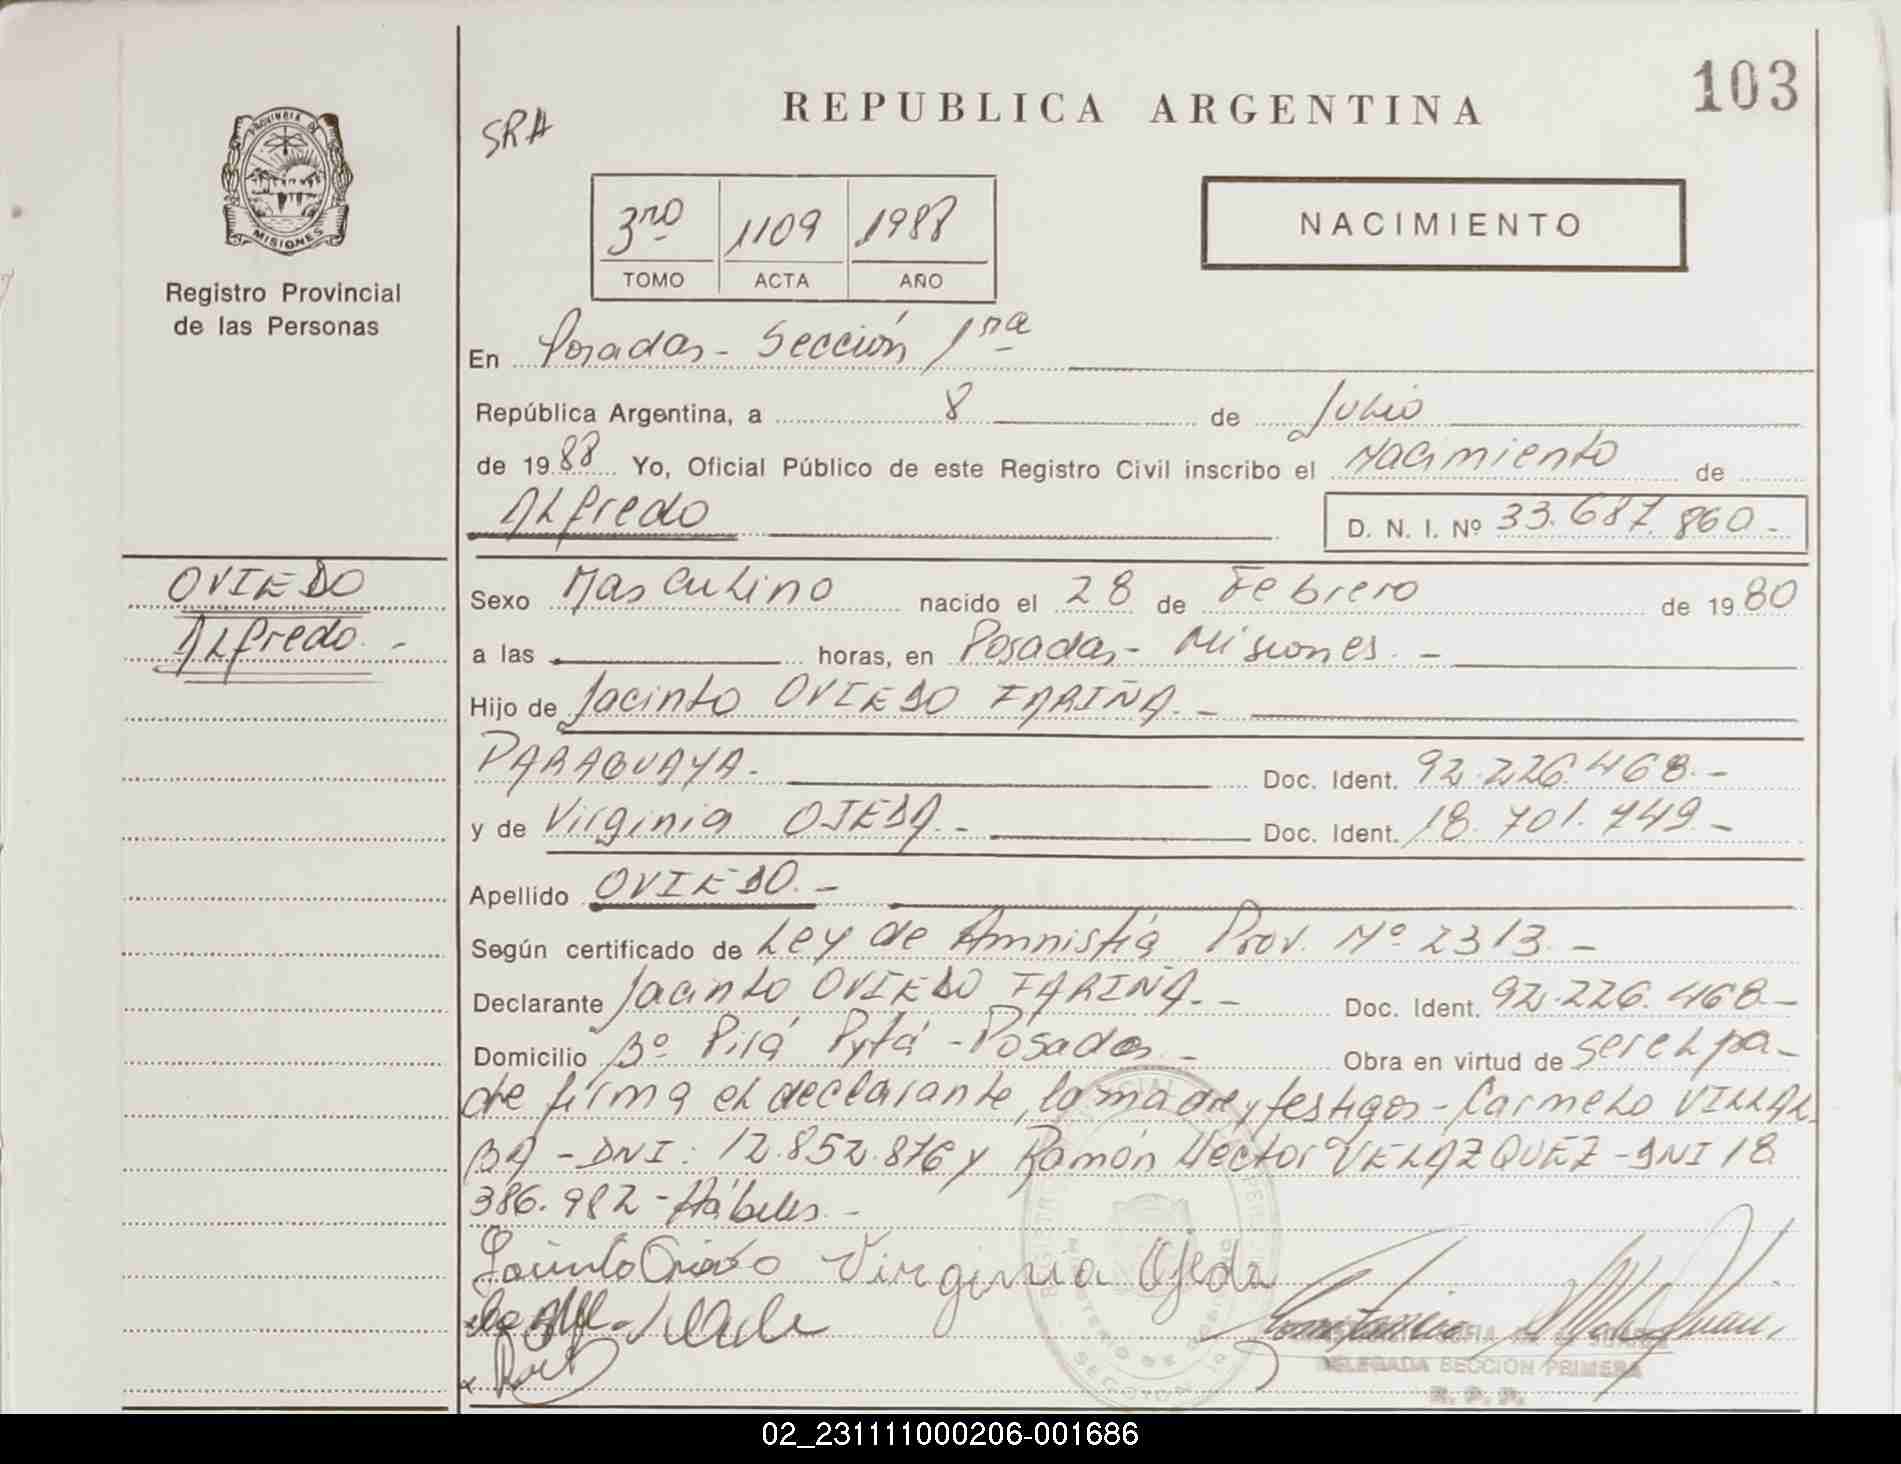 103
REPUBLICA ARGENTINA
SRA
PROVINCIA DE
MISIONES
Registro Provincial
de las Personas
3ro 1109 1988
TOMO ACTA AÑO
NACIMIENTO
En Posadas - Sección 1ra
República Argentina, a 8 de Julio
de 1988 Yo, Oficial Público de este Registro Civil inscribo el Nacimiento de
Alfredo
D. N. I. Nº 33.687.860-
OVIEDO
Alfredo. -
Sexo Masculino nacido el 28 de Febrero de 1980
a las horas, en Posadas - Misiones. -
Hijo de Jacinto OVIEDO FARIÑA. -
PARAGUAYA. Doc. Ident. 92.226.468.-
y de Virginia OJEDA. - Doc. Ident. 18.701.749.-
Apellido OVIEDO. -
Según certificado de Ley de Amnistía Prov. Nº 2313. -
Declarante Jacinto OVIEDO FARIÑA. - Doc. Ident. 92.226.468-
Domicilio Bº Pirá Pytá - Posadas. - Obra en virtud de ser el pa-
dre firma el declarante, la madre y testigos - Carmelo VILLAL
BA - DNI: 12.852.876 y Ramón Hector VELAZQUEZ - DNI 18.
386.982 - Hábiles. -
Virginia Ojeda
DELEGADA SECCION PRIMERA
R. P. P.
02_231111000206-001686